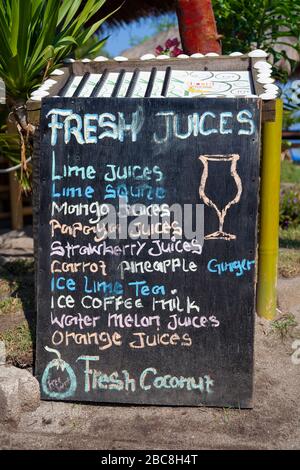 FRESH JUICES
Lime Juices
Lime squine
Mango Juices
Papaya Juices
Strawberry Juices
Carrot Pineapple Gingjer
ICE Lime Tea.
ICE COFFEE MILK
Water melon Juices
Orange Juices
Fresh Coconut
alamy
Image ID: 2BC8H4T
www.alamy.com